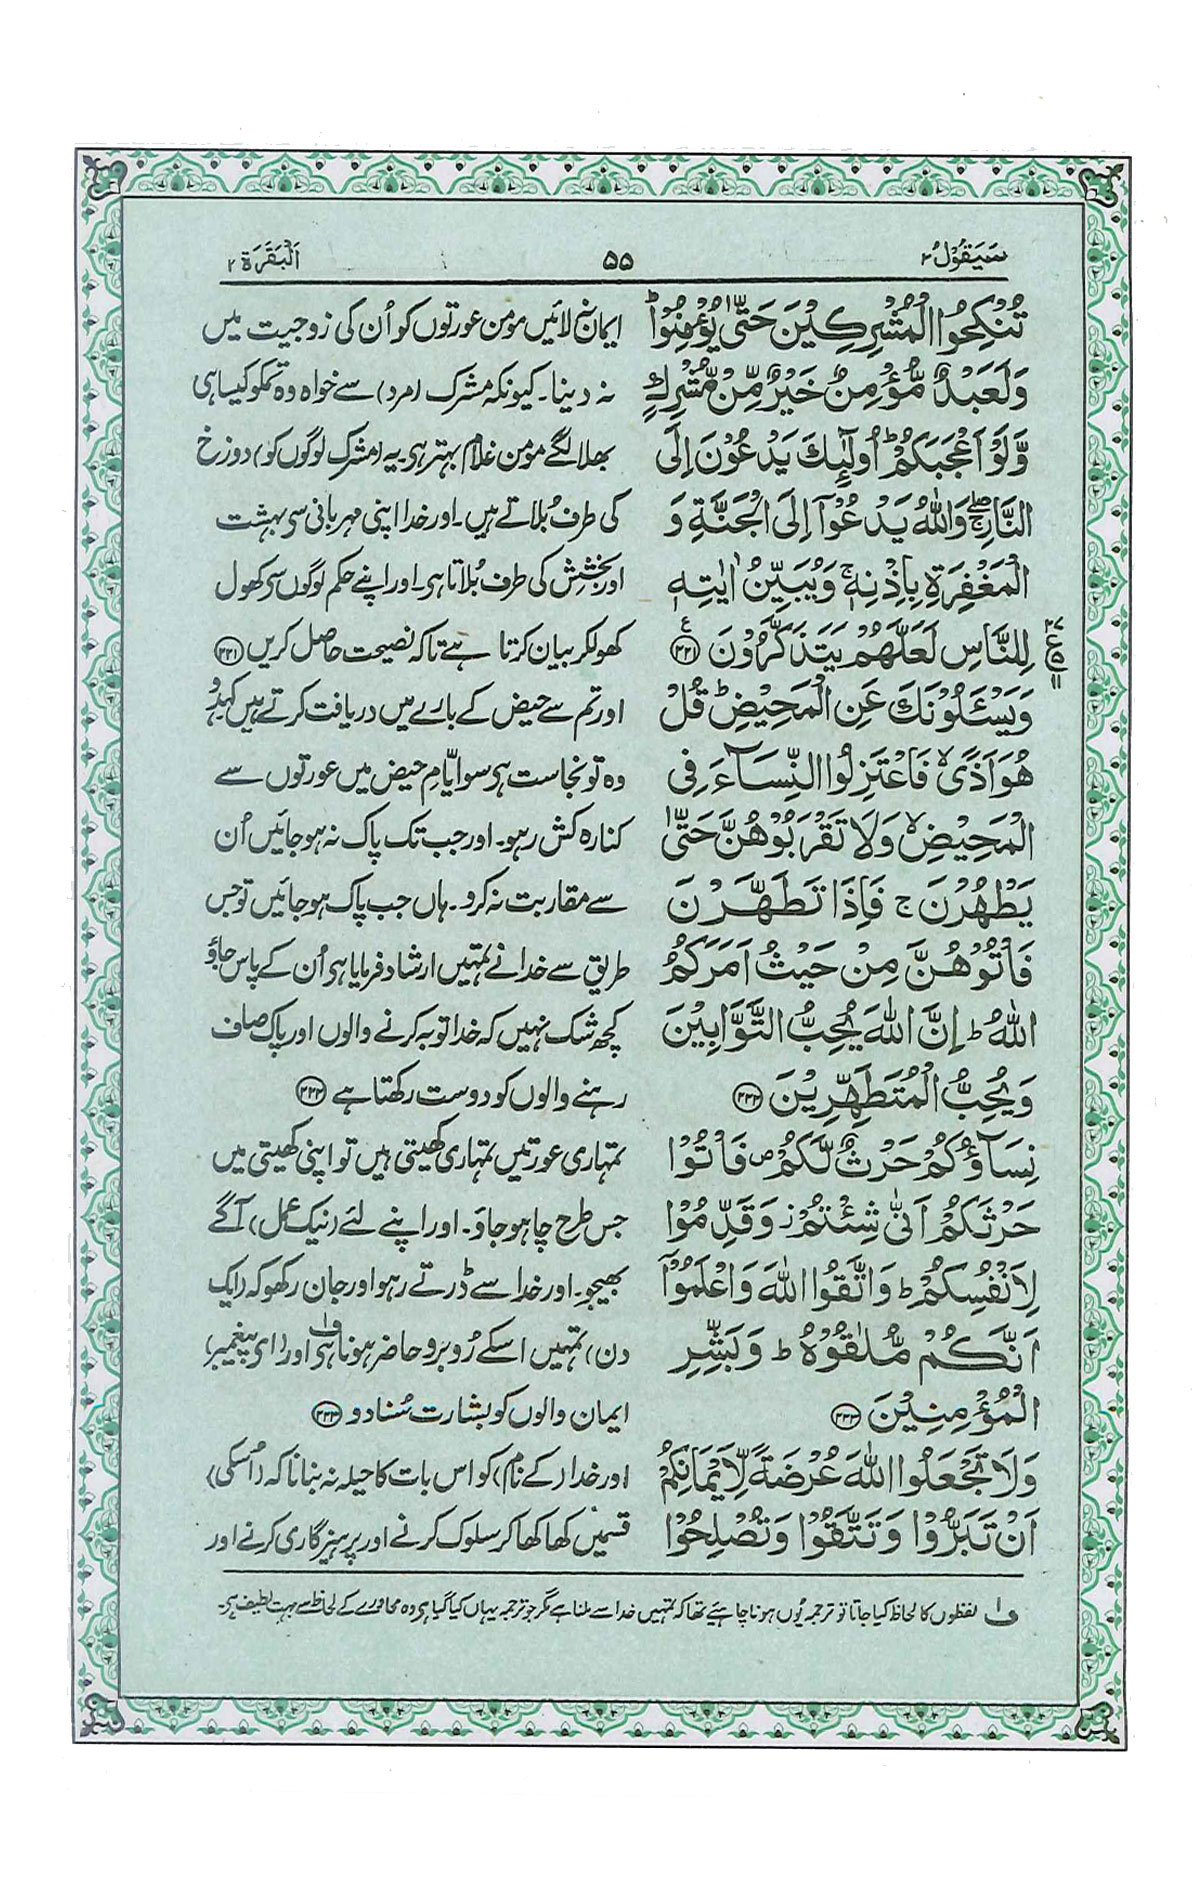 سَيَقُوْلُ ٢
٥٥
اَلْبَقَرَة ٢
تُنْكِحُوا الْمُشْرِكِيْنَ حَتّٰى يُؤْمِنُوْا ؕ
وَلَعَبْدٌ مُّؤْمِنٌ خَيْرٌ مِّنْ مُّشْرِكٍ
وَّلَوْ اَعْجَبَكُمْ ؕ اُولٰٓئِكَ يَدْعُوْنَ اِلَى
النَّارِ ۖۚ وَاللّٰهُ يَدْعُوْۤا اِلَى الْجَنَّةِ وَ
الْمَغْفِرَةِ بِاِذْنِهٖ ۚ وَيُبَيِّنُ اٰيٰتِهٖ
لِلنَّاسِ لَعَلَّهُمْ يَتَذَكَّرُوْنَ ﴿۲۲۱﴾ ع
وَيَسْـَٔلُوْنَكَ عَنِ الْمَحِيْضِ ؕ قُلْ
هُوَ اَذًى ۙ فَاعْتَزِلُوا النِّسَآءَ فِى
الْمَحِيْضِ ۙ وَلَا تَقْرَبُوْهُنَّ حَتّٰى
يَطْهُرْنَ ۚ فَاِذَا تَطَهَّرْنَ
فَاْتُوْهُنَّ مِنْ حَيْثُ اَمَرَكُمُ
اللّٰهُ ؕ اِنَّ اللّٰهَ يُحِبُّ التَّوَّابِيْنَ
وَيُحِبُّ الْمُتَطَهِّرِيْنَ ﴿۲۲۲﴾
نِسَآؤُكُمْ حَرْثٌ لَّكُمْ ۪ فَاْتُوْا
حَرْثَكُمْ اَنّٰى شِئْتُمْ ؗ وَقَدِّمُوْا
لِاَنْفُسِكُمْ ؕ وَاتَّقُوا اللّٰهَ وَاعْلَمُوْۤا
اَنَّكُمْ مُّلٰقُوْهُ ؕ وَبَشِّرِ
الْمُؤْمِنِيْنَ ﴿۲۲۳﴾
وَلَا تَجْعَلُوا اللّٰهَ عُرْضَةً لِّاَيْمَانِكُمْ
اَنْ تَبَرُّوْا وَتَتَّقُوْا وَتُصْلِحُوْا
ایمان نہ لائیں مومن عورتوں کو اُن کی زوجیت میں
نہ دینا۔ کیونکہ مشرک (مرد) سے خواہ وہ تمکو کیسا ہی
بھلا لگے مومن غلام بہتر ہی۔ یہ (مشرک لوگوں کو) دوزخ
کی طرف بُلاتے ہیں۔ اور خدا اپنی مہربانی سی بہشت
اور بخشِش کی طرف بُلاتا ہی۔ اور اپنے حکم لوگوں سی کھول
کھولکر بیان کرتا ہے تاکہ نصیحت حاصل کریں ﴿۲۲۱﴾
اور تم سے حیض کے بارے میں دریافت کرتے ہیں کہدو
وہ تو نجاست ہی سو ایّامِ حیض میں عورتوں سے
کنارہ کش رہو۔ اور جب تک پاک نہ ہو جائیں اُن
سے مقاربت نہ کرو۔ ہاں جب پاک ہو جائیں تو جس
طریق سے خدا نے تمہیں ارشاد فرمایا ہی اُن کے پاس جاؤ
کچھ شک نہیں کہ خدا توبہ کرنے والوں اور پاک صاف
رہنے والوں کو دوست رکھتا ہے ﴿۲۲۲﴾
تمہاری عورتیں تمہاری کھیتی ہیں تو اپنی کھیتی میں
جس طرح چاہو جاؤ۔ اور اپنے لئے (نیک عمل) آگے
بھیجو۔ اور خدا سے ڈرتے رہو اور جان رکھو کہ (ایک
دن) تمہیں اسکے رُوبرو حاضر ہونا ہی ف۱ اور (ای پیغمبر)
ایمان والوں کو بشارت سُنا دو ﴿۲۲۳﴾
اور خدا (کے نام) کو اس بات کا حیلہ نہ بنانا کہ (اُسکی)
قسمیں کھا کھا کر سلوک کرنے اور پرہیزگاری کرنے اور
ف۱ لفظوں کا لحاظ کیا جاتا تو ترجمہ یُوں ہونا چاہیے تھا کہ تمہیں خدا سے ملنا ہے مگر جو ترجمہ یہاں کیا گیا ہی وہ محاورے کے لحاظ سے بہت لطیف ہی۔